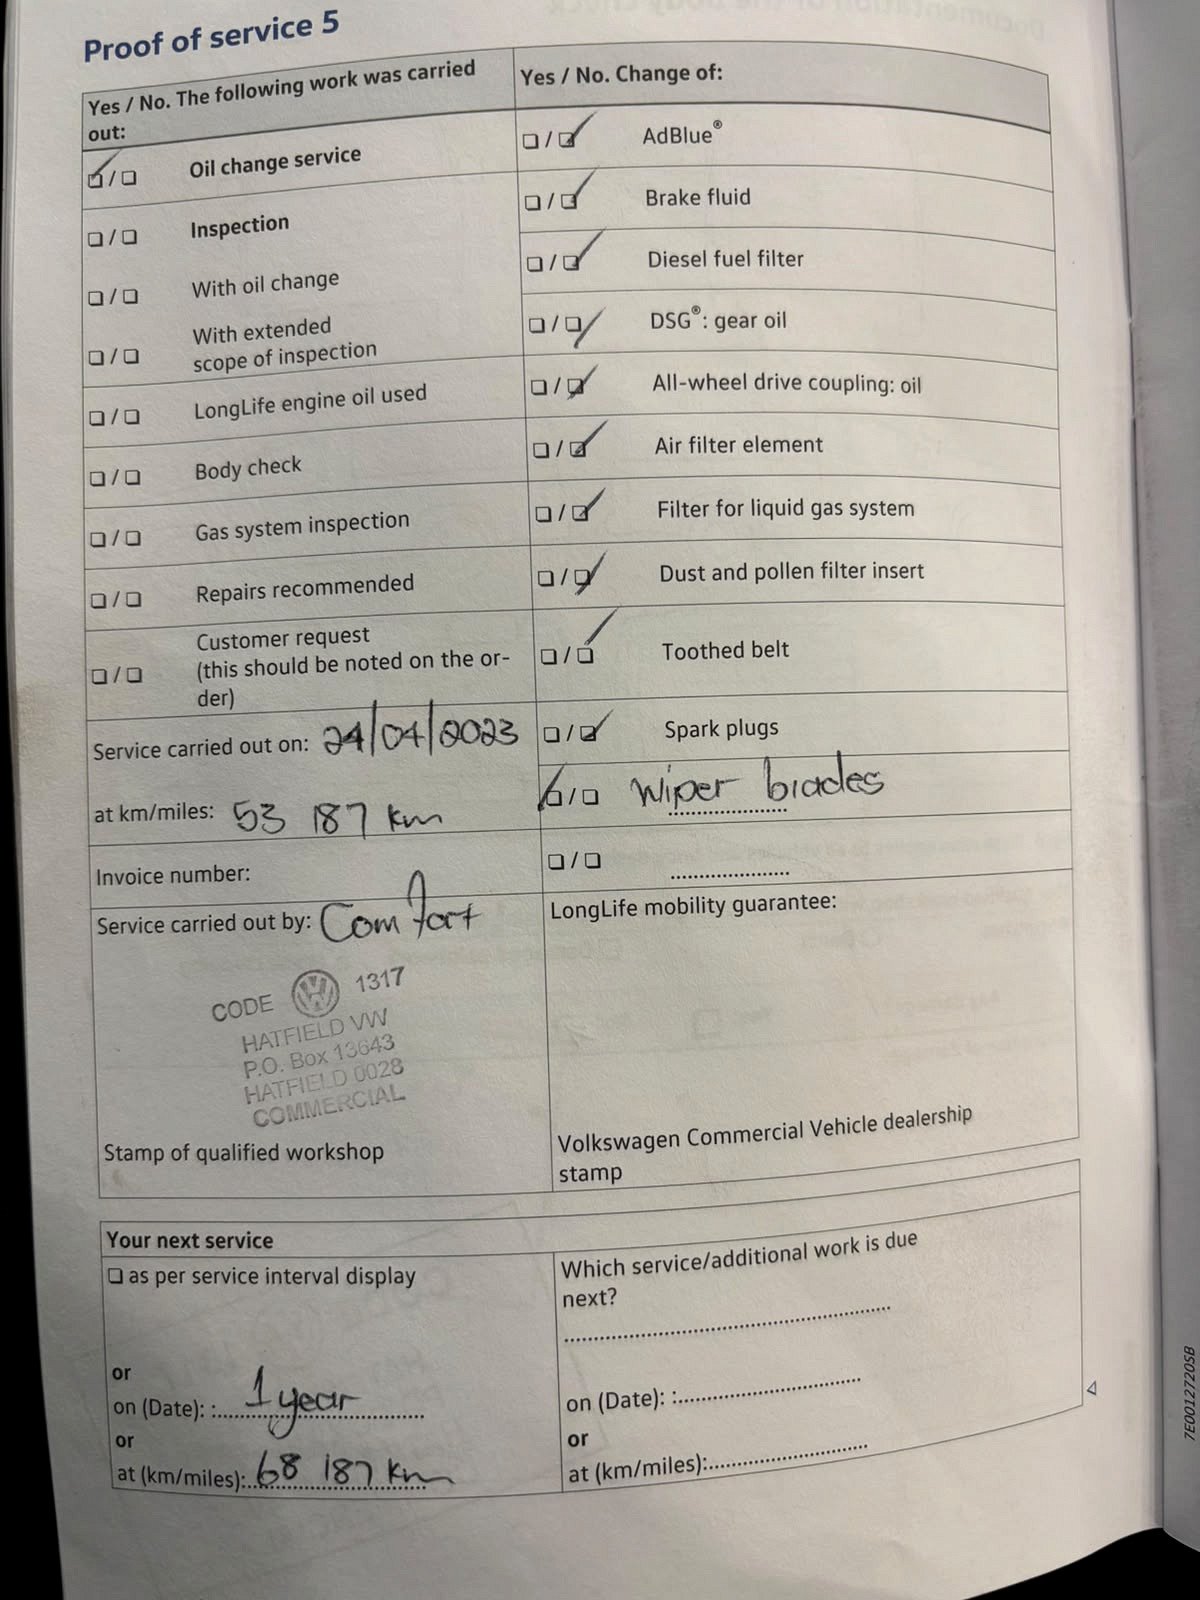 Proof of service 5
Yes / No. The following work was carried
out:
☑/☐ Oil change service
☐/☐ Inspection
☐/☐ With oil change
☐/☐ With extended
scope of inspection
☐/☐ LongLife engine oil used
☐/☐ Body check
☐/☐ Gas system inspection
☐/☐ Repairs recommended
☐/☐ Customer request
(this should be noted on the or-
der)
Service carried out on: 24/04/2023
at km/miles: 53 187 km
Invoice number:
Service carried out by: Comfort
CODE 1317
HATFIELD VW
P.O. Box 13643
HATFIELD 0028
COMMERCIAL
Stamp of qualified workshop
Yes / No. Change of:
☐/☑ AdBlue®
☐/☑ Brake fluid
☐/☑ Diesel fuel filter
☐/☑ DSG®: gear oil
☐/☑ All-wheel drive coupling: oil
☐/☑ Air filter element
☐/☑ Filter for liquid gas system
☐/☑ Dust and pollen filter insert
☐/☑ Toothed belt
☐/☑ Spark plugs
☑/☐ Wiper blades
☐/☐ ....................
LongLife mobility guarantee:
Volkswagen Commercial Vehicle dealership
stamp
Your next service
☐ as per service interval display
or
on (Date): : 1 year
or
at (km/miles): 68 187 km
Which service/additional work is due
next?
on (Date): :
or
at (km/miles):
7E0012720SB